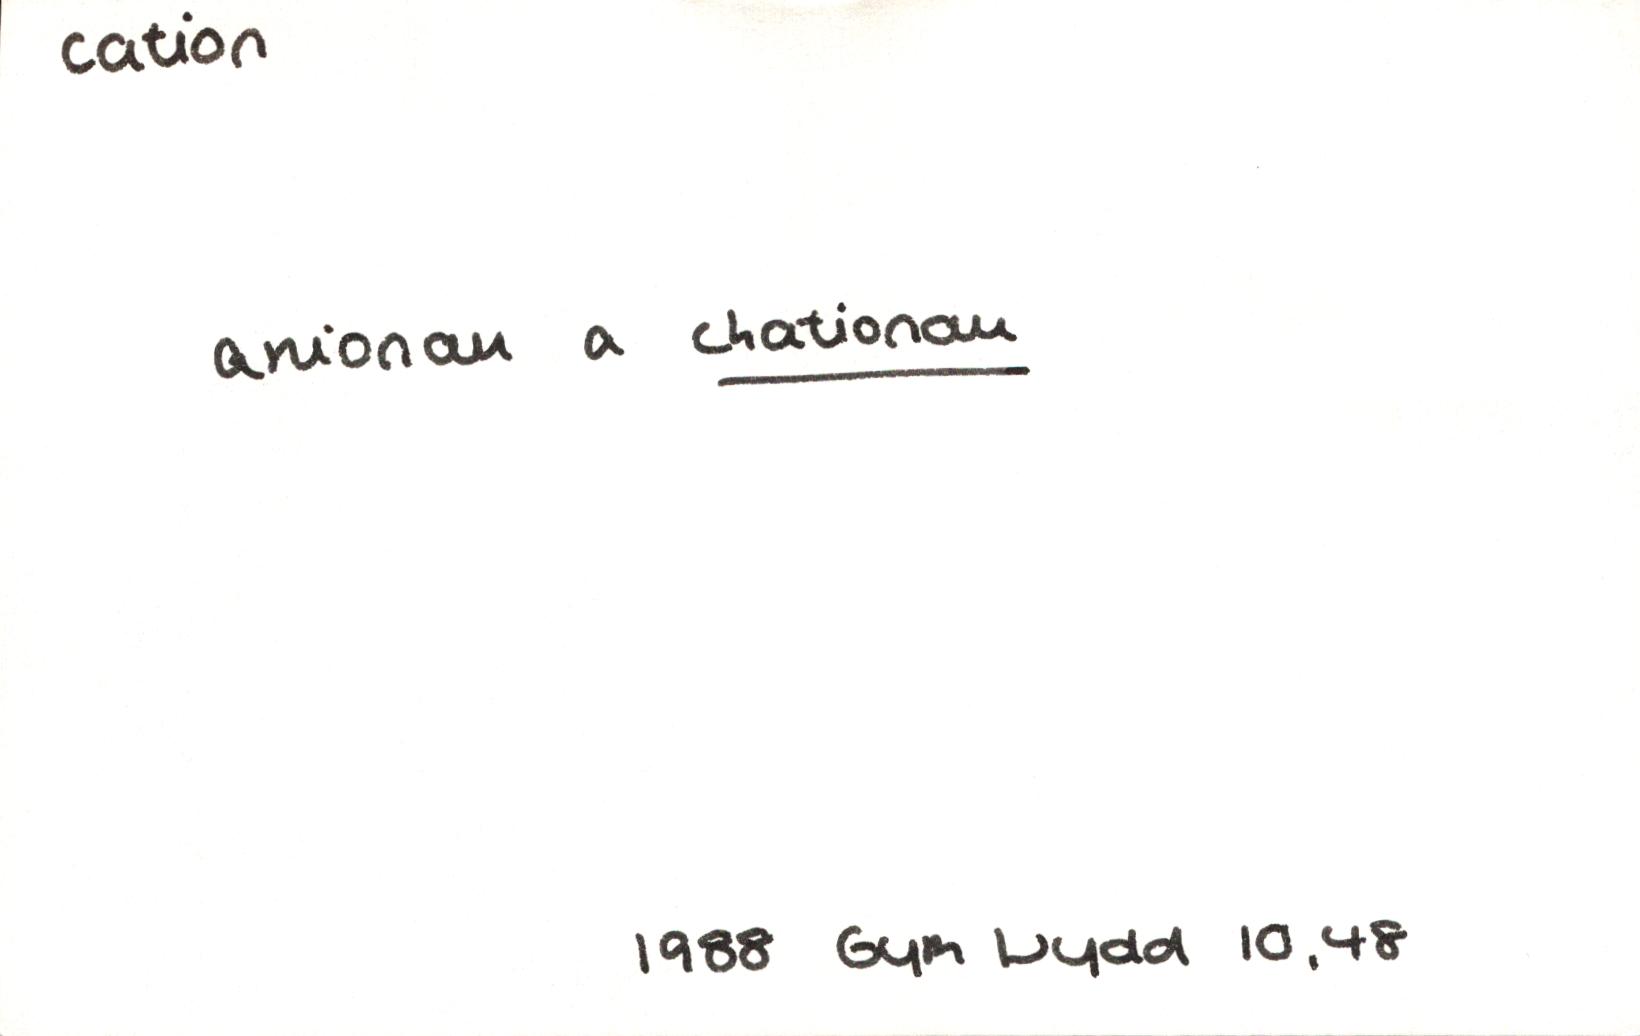 cation
anionau a chationau
1988 Gym Wydd 10,48